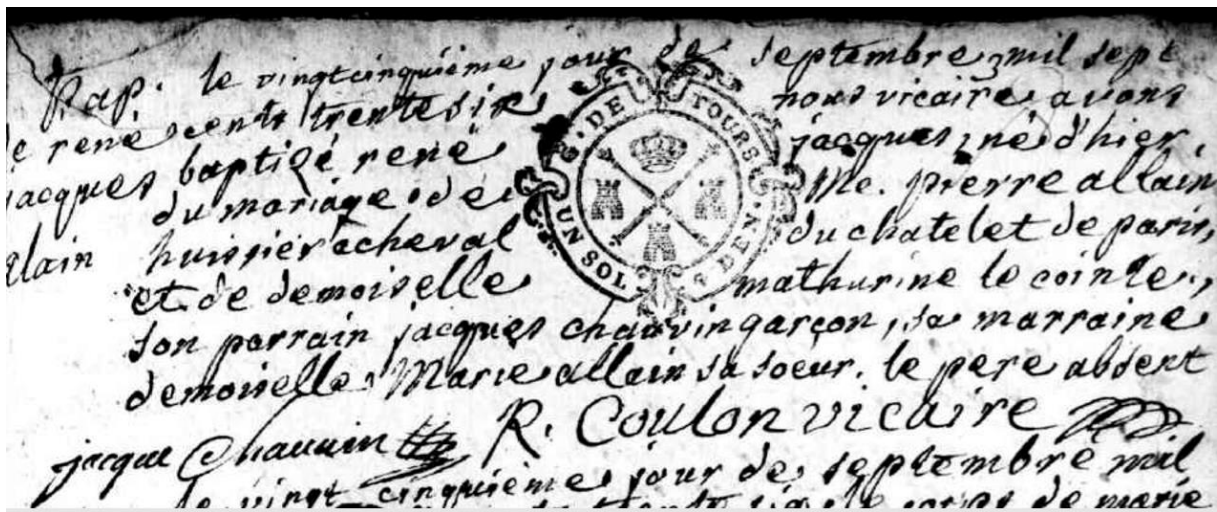 Bap. le vingtcinquième jour de septembre mil sept
de rené cents trente six nous vicaire avons
jacques baptizé rené jacques né d'hier,
allain du mariage de Me. pierre allain
huissier acheval du chatelet de paris,
et de demoiselle mathurine le cointe,
son parrain jacques chauvin garçon, sa marraine
demoiselle Marie allain sa soeur. le pere absent
jacque Chauuin R. Coulon vicaire
le vingt cinquième jour de septembre mil
de marie
G. DE TOURS
UN SOL DEN.